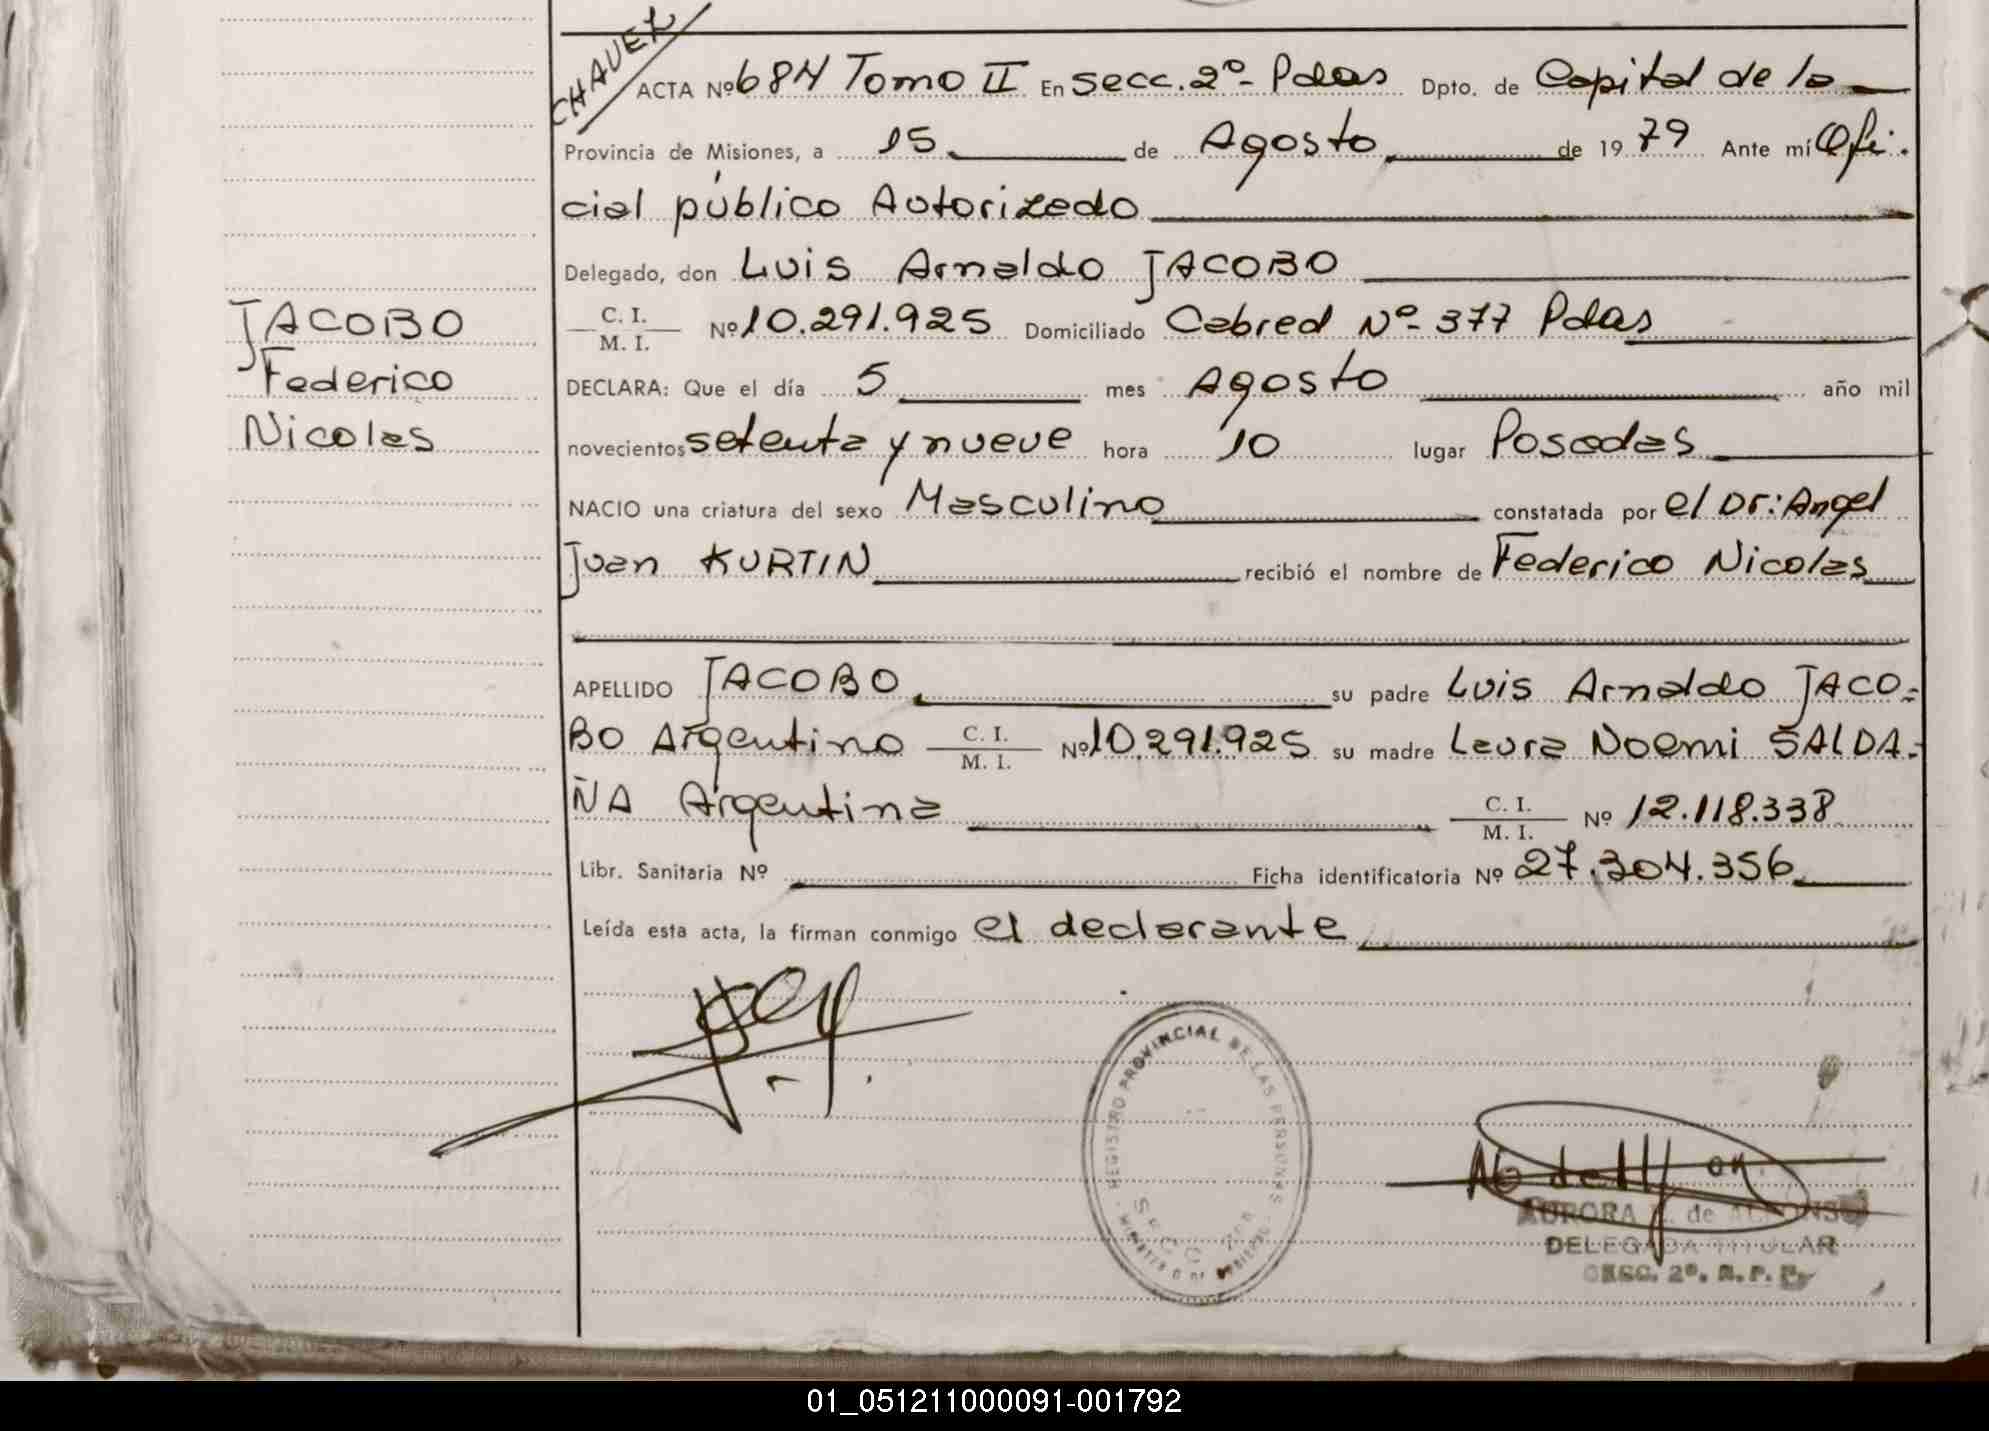 CHAVEZ
ACTA Nº 684 Tomo II En secc. 2º- Pdas Dpto. de Capital de la
Provincia de Misiones, a 15 de Agosto de 1979 Ante mí Ofi-
cial público Autorizado
Delegado, don Luis Arnaldo JACOBO
C. I.
M. I. Nº 10.291.925 Domiciliado Cabred Nº- 377 Pdas
JACOBO
Federico
Nicolas
DECLARA: Que el día 5 mes Agosto año mil
novecientos setenta y nueve hora 10 lugar Posadas
NACIO una criatura del sexo Masculino constatada por el Dr: Angel
Juan KURTIN recibió el nombre de Federico Nicolas
APELLIDO JACOBO su padre Luis Arnaldo JACO=
BO Argentino C. I.
M. I. Nº 10.291.925 su madre Laura Noemi SALDA=
ÑA Argentina C. I.
M. I. Nº 12.118.338
Libr. Sanitaria Nº Ficha identificatoria Nº 27.304.356
Leída esta acta, la firman conmigo el declarante
REGISTRO PROVINCIAL DE LAS PERSONAS
SECC.
AURORA de
DELEGADA TITULAR
SECC. 2º. R. P. P.
01_051211000091-001792